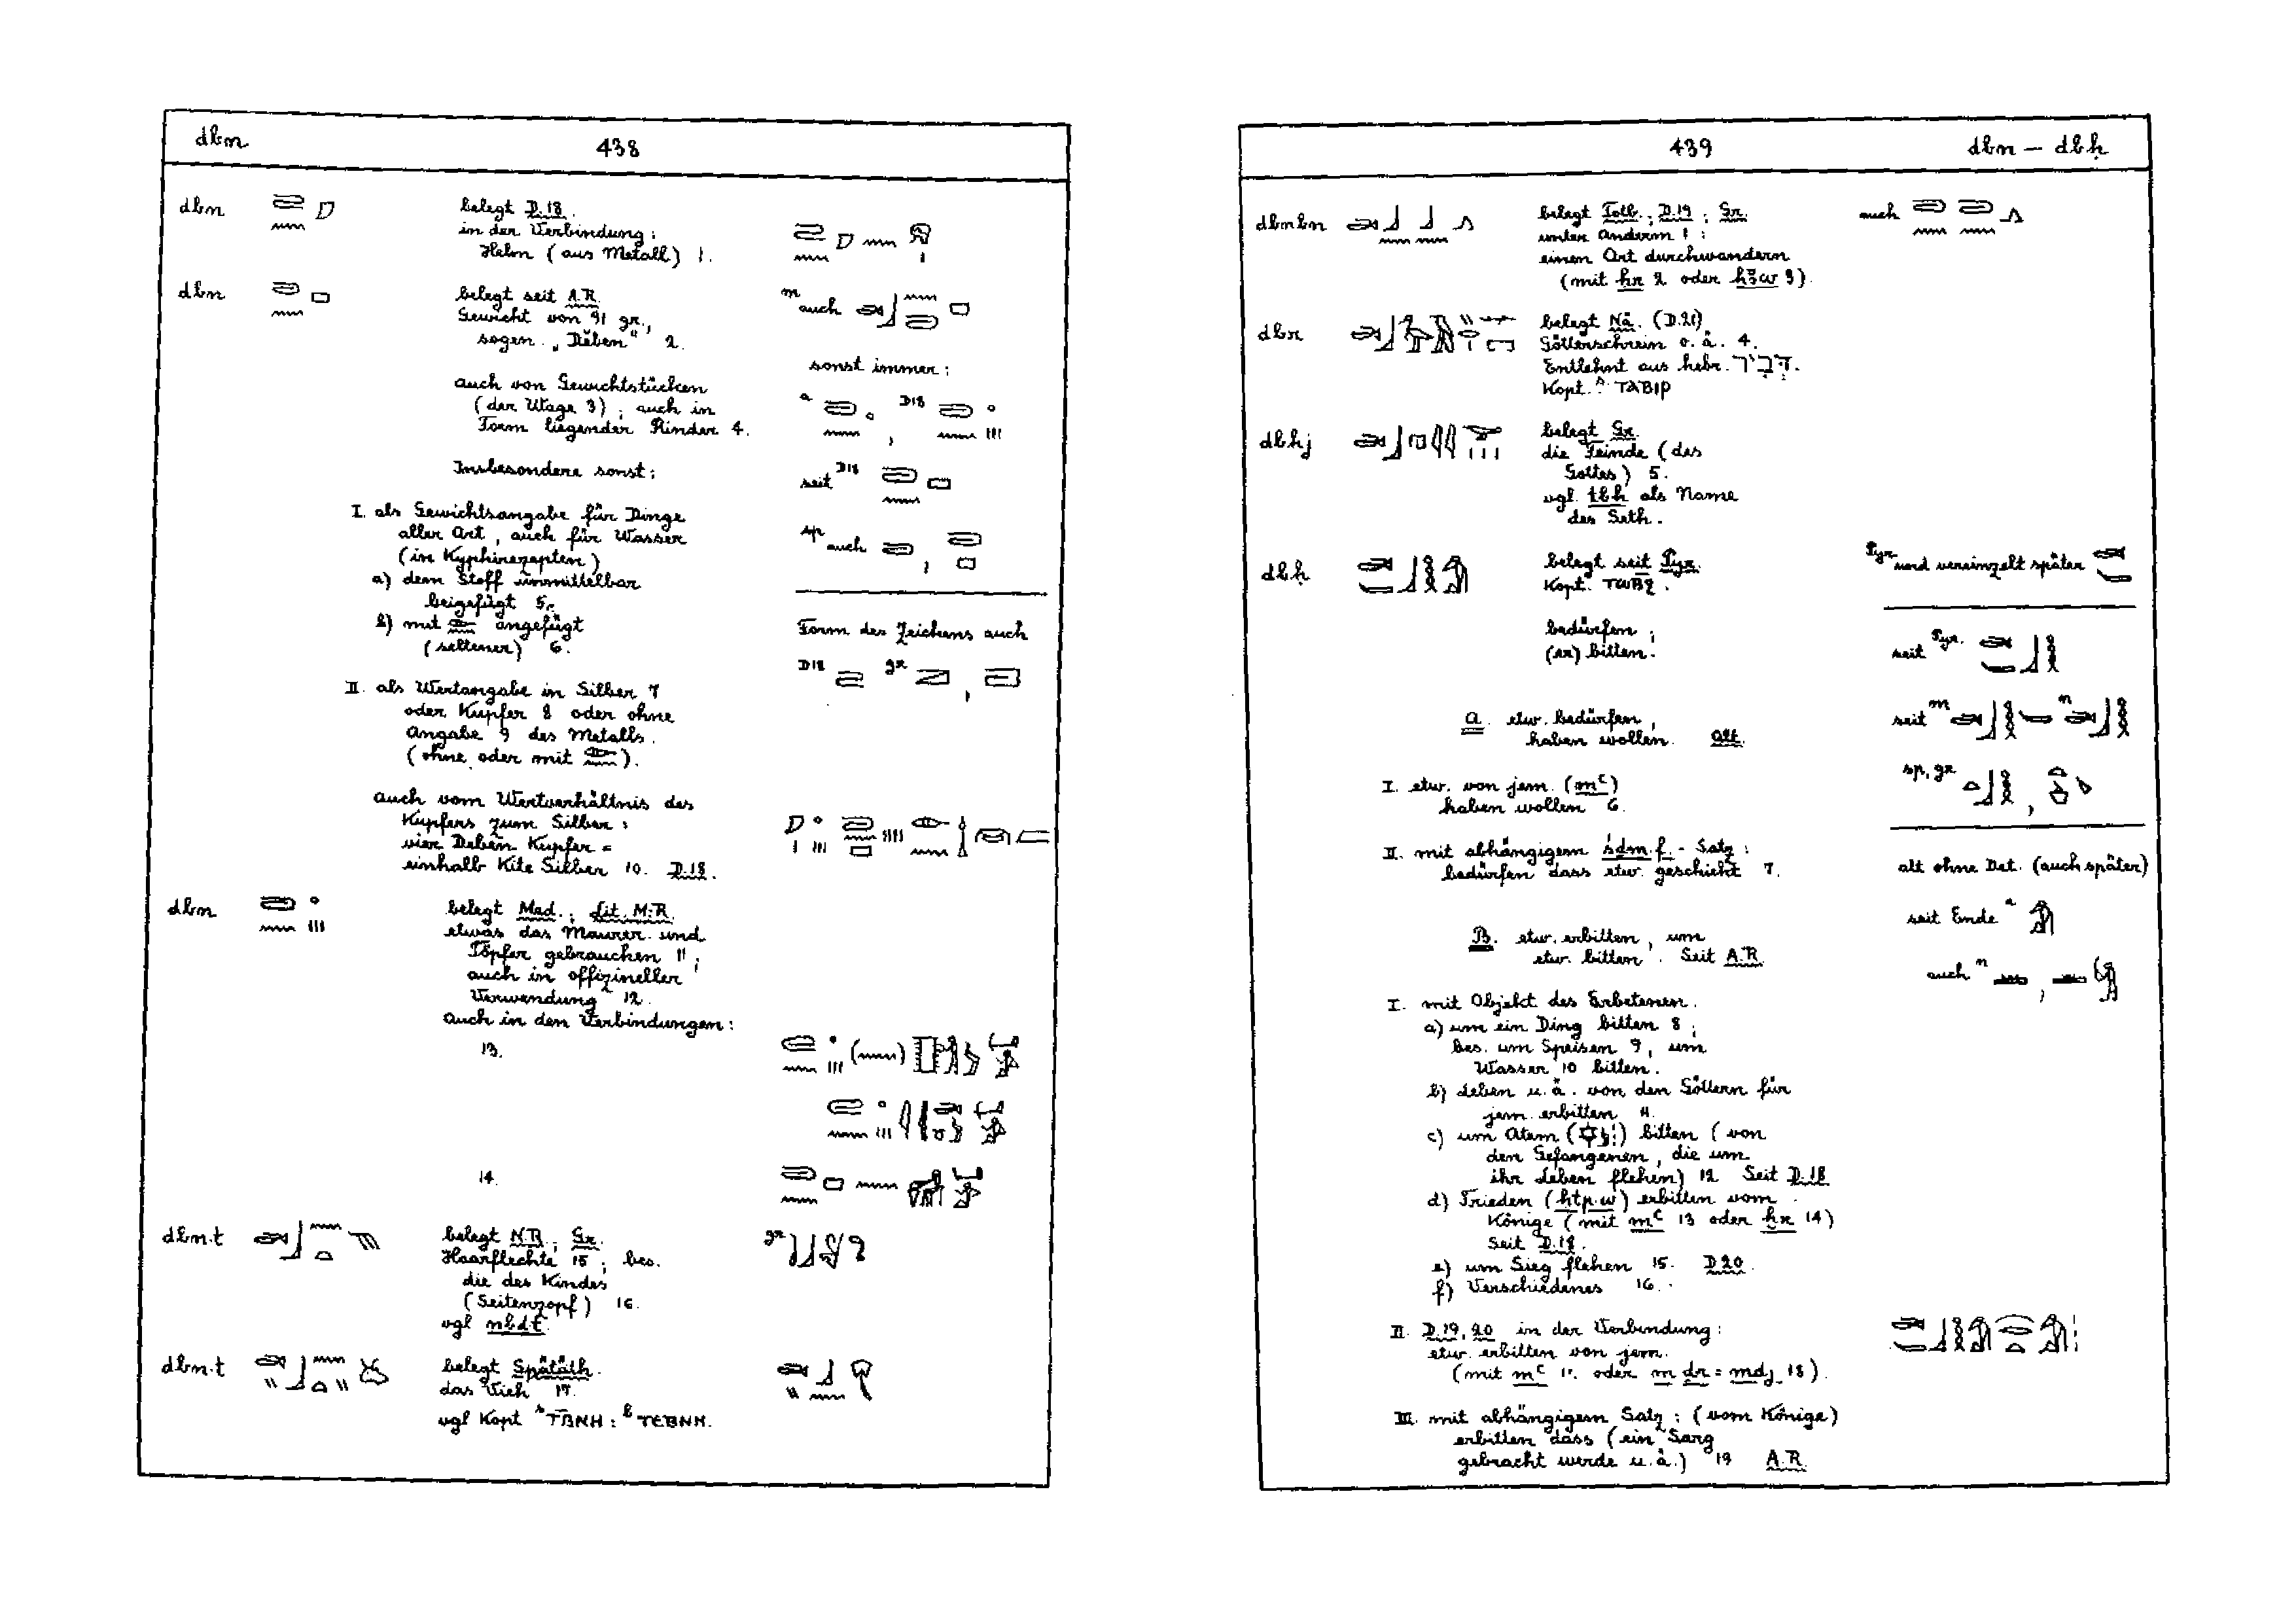 dbn 438
dbn belegt D.18.
in der Verbindung:
Helm (aus Metall) 1.
dbn belegt seit A.R.
Gewicht von 91 gr.,
sogen. „Deben“ 2.
m auch
auch von Gewichtstücken
(der Wage 3); auch in
Form liegender Rinder 4.
sonst immer:
a , D18
Insbesondere sonst:
seit D18
I. als Gewichtsangabe für Dinge
aller Art, auch für Wasser
(in Kyphirezepten)
sp auch ,
a) dem Stoff unmittelbar
beigefügt 5.
b) mit angefügt
(seltener) 6.
Form des Zeichens auch
D18 gr ,
II. als Wertangabe in Silber 7
oder Kupfer 8 oder ohne
Angabe 9 des Metalls.
(ohne oder mit ).
auch vom Wertverhältnis des
Kupfers zum Silber:
vier Deben Kupfer =
einhalb Kite Silber 10. D.18.
dbn belegt Med.; Lit. M.R.
etwas das Maurer und
Töpfer gebrauchen 11;
auch in offizineller
Verwendung 12.
Auch in den Verbindungen:
13.
14.
dbn.t belegt N.R.; Gr.
Haarflechte 15; bes.
die des Kindes
(Seitenzopf) 16.
vgl nbd.t
gr
dbn.t belegt Spätäth.
das Vieh 17.
vgl Kopt. ˢ ⲦⲂⲚⲎ : ᵇ ⲦⲈⲂⲚⲎ.
439 dbn — dbḥ
dbnbn belegt Totb.; D.19; Gr.
unter Anderm 1:
einen Ort durchwandern
(mit ḥr 2 oder ḫꜣw 3).
auch
dbr belegt Nä. (D.21)
Götterschrein o.ä. 4.
Entlehnt aus hebr. דְּבִיר.
Kopt. ⲦⲀⲂⲒⲢ
dbhj belegt Gr.
die Feinde (des
Gottes) 5.
vgl. tbh als Name
des Seth.
dbḥ belegt seit Pyr.
Kopt. ⲦⲰⲂϨ.
Pyr und vereinzelt später
bedürfen;
(er)bitten.
seit Pyr.
A. etw. bedürfen,
haben wollen. Alt.
seit m n
I. etw. von jem. (mꜥ)
haben wollen 6.
sp, gr ,
II. mit abhängigem śdm.f - Satz:
bedürfen dass etw. geschieht 7.
alt ohne Det. (auch später)
seit Ende a
B. etw. erbitten, um
etw. bitten. Seit A.R.
auch n ,
I. mit Objekt des Erbetenen.
a) um ein Ding bitten 8;
bes. um Speisen 9, um
Wasser 10 bitten.
b) Leben u.ä. von den Göttern für
jem. erbitten 11.
c) um Atem ( ) bitten (von
den Gefangenen, die um
ihr Leben flehen) 12 Seit D.18
d) Frieden (ḥtp.w) erbitten vom
Könige (mit mꜥ 13 oder ḫr 14)
Seit D.18.
e) um Sieg flehen 15. D20.
f) Verschiedenes 16.
II. D.19, 20 in der Verbindung:
etw. erbitten von jem.
(mit mꜥ 17 oder m dr = mdj 18).
III. mit abhängigem Satz: (vom Könige)
erbitten dass (ein Sarg
gebracht werde u.ä.) 19 A.R.